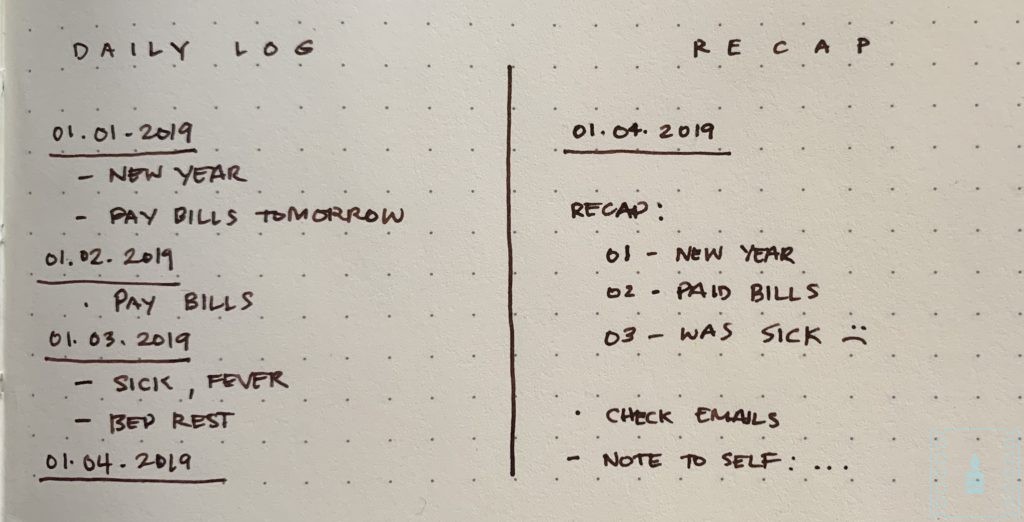 DAILY LOG
01.01-2019
- NEW YEAR
- PAY BILLS TOMORROW
01.02.2019
· PAY BILLS
01.03.2019
- SICK, FEVER
- BED REST
01.04.2019
RECAP
01.04.2019
RECAP:
01 - NEW YEAR
02 - PAID BILLS
03 - WAS SICK :(
· CHECK EMAILS
- NOTE TO SELF: ...